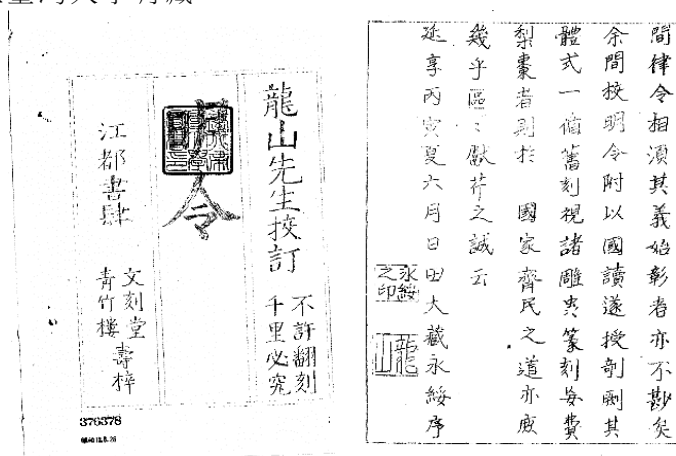 間律令相須其義始彰者亦不尠矣
余間校明令附以國讀遂授剞劂其
體式一循舊刻視諸雕蟲篆刻每費
梨棗者則於 國家齊民之道亦庶
幾乎區々獻芹之誠云
延享丙寅夏六月日田大藏永綏序
永綏之印
龍山
龍山先生校訂
不許翻刻
千里必究
令
江都書肆
文刻堂
青竹樓
壽梓
376378